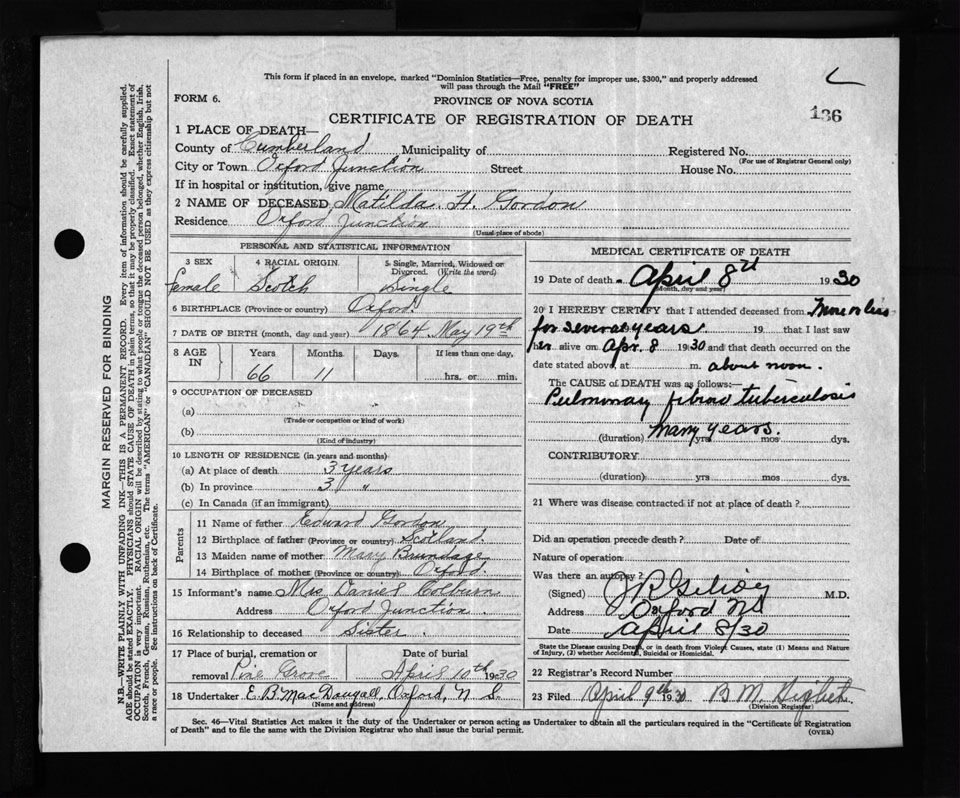 This form if placed in an envelope, marked "Dominion Statistics—Free, penalty for improper use, $300," and properly addressed
will pass through the Mail "FREE"
FORM 6.
PROVINCE OF NOVA SCOTIA
136
CERTIFICATE OF REGISTRATION OF DEATH
1 PLACE OF DEATH—
County of Cumberland Municipality of Registered No.
(For use of Registrar General only)
City or Town Oxford Junction Street House No.
If in hospital or institution, give name
2 NAME OF DECEASED Matilda. H. Gordon
Residence Oxford Junction
(Usual place of abode)
PERSONAL AND STATISTICAL INFORMATION
3 SEX 4 RACIAL ORIGIN 5 Single, Married, Widowed or
Divorced. (Write the word)
female Scotch Single
6 BIRTHPLACE (Province or country) Oxford.
7 DATE OF BIRTH (month, day and year) 1864 May 19th
8 AGE IN Years Months Days. If less than one day,
66 11 hrs. or min.
9 OCCUPATION OF DECEASED
(a)
(Trade or occupation or kind of work)
(b)
(Kind of industry)
10 LENGTH OF RESIDENCE (in years and months)
(a) At place of death 3 years
(b) In province 3 "
(c) In Canada (if an immigrant)
Parents
11 Name of father Edward Gordon
12 Birthplace of father (Province or country) Scotland
13 Maiden name of mother Mary Brundage
14 Birthplace of mother (Province or country) Oxford.
15 Informant's name Mrs Daniel Colburn
Address Oxford Junction.
16 Relationship to deceased Sister.
17 Place of burial, cremation or Date of burial
removal Pine Grove April 10th 1930
18 Undertaker E. B. MacDougall, Oxford, N. S.
(Name and address)
MEDICAL CERTIFICATE OF DEATH
19 Date of death April 8th 1930
(Month, day and year)
20 I HEREBY CERTIFY that I attended deceased from More or less
for several years 19 that I last saw
her alive on Apr. 8 1930 and that death occurred on the
date stated above, at m. about noon.
The CAUSE of DEATH was as follows:—
Pulmonary fibroid tuberculosis
(duration) Many years. yrs mos dys.
CONTRIBUTORY
(duration) yrs mos dys.
21 Where was disease contracted if not at place of death?
Did an operation precede death? Date of
Nature of operation
Was there an autopsy?
(Signed) M.D.
Address Oxford NS
Date April 8/30
State the Disease causing Death, or in death from Violent Causes, state (1) Means and Nature
of Injury, (2) whether Accidental, Suicidal or Homicidal.
22 Registrar's Record Number
23 Filed April 9th 1930 B. M.
(Division Registrar)
Sec. 46—Vital Statistics Act makes it the duty of the Undertaker or person acting as Undertaker to obtain all the particulars required in the "Certificate of Registration
of Death" and to file the same with the Division Registrar who shall issue the burial permit.
(OVER)
MARGIN RESERVED FOR BINDING
N.B.—WRITE PLAINLY WITH UNFADING INK—THIS IS A PERMANENT RECORD. Every item of information should be carefully supplied.
AGE should be stated EXACTLY. PHYSICIANS should STATE CAUSE OF DEATH in plain terms, so that it may be properly classified. Exact statement of
OCCUPATION is very important. RACIAL ORIGIN will be described by stating to what people or tongue the deceased person belonged, whether English, Irish,
Scotch, French, German, Russian, Ruthenian, etc. The terms "AMERICAN" or "CANADIAN" SHOULD NOT BE USED as they express citizenship but not
a race or people. See instructions on back of Certificate.